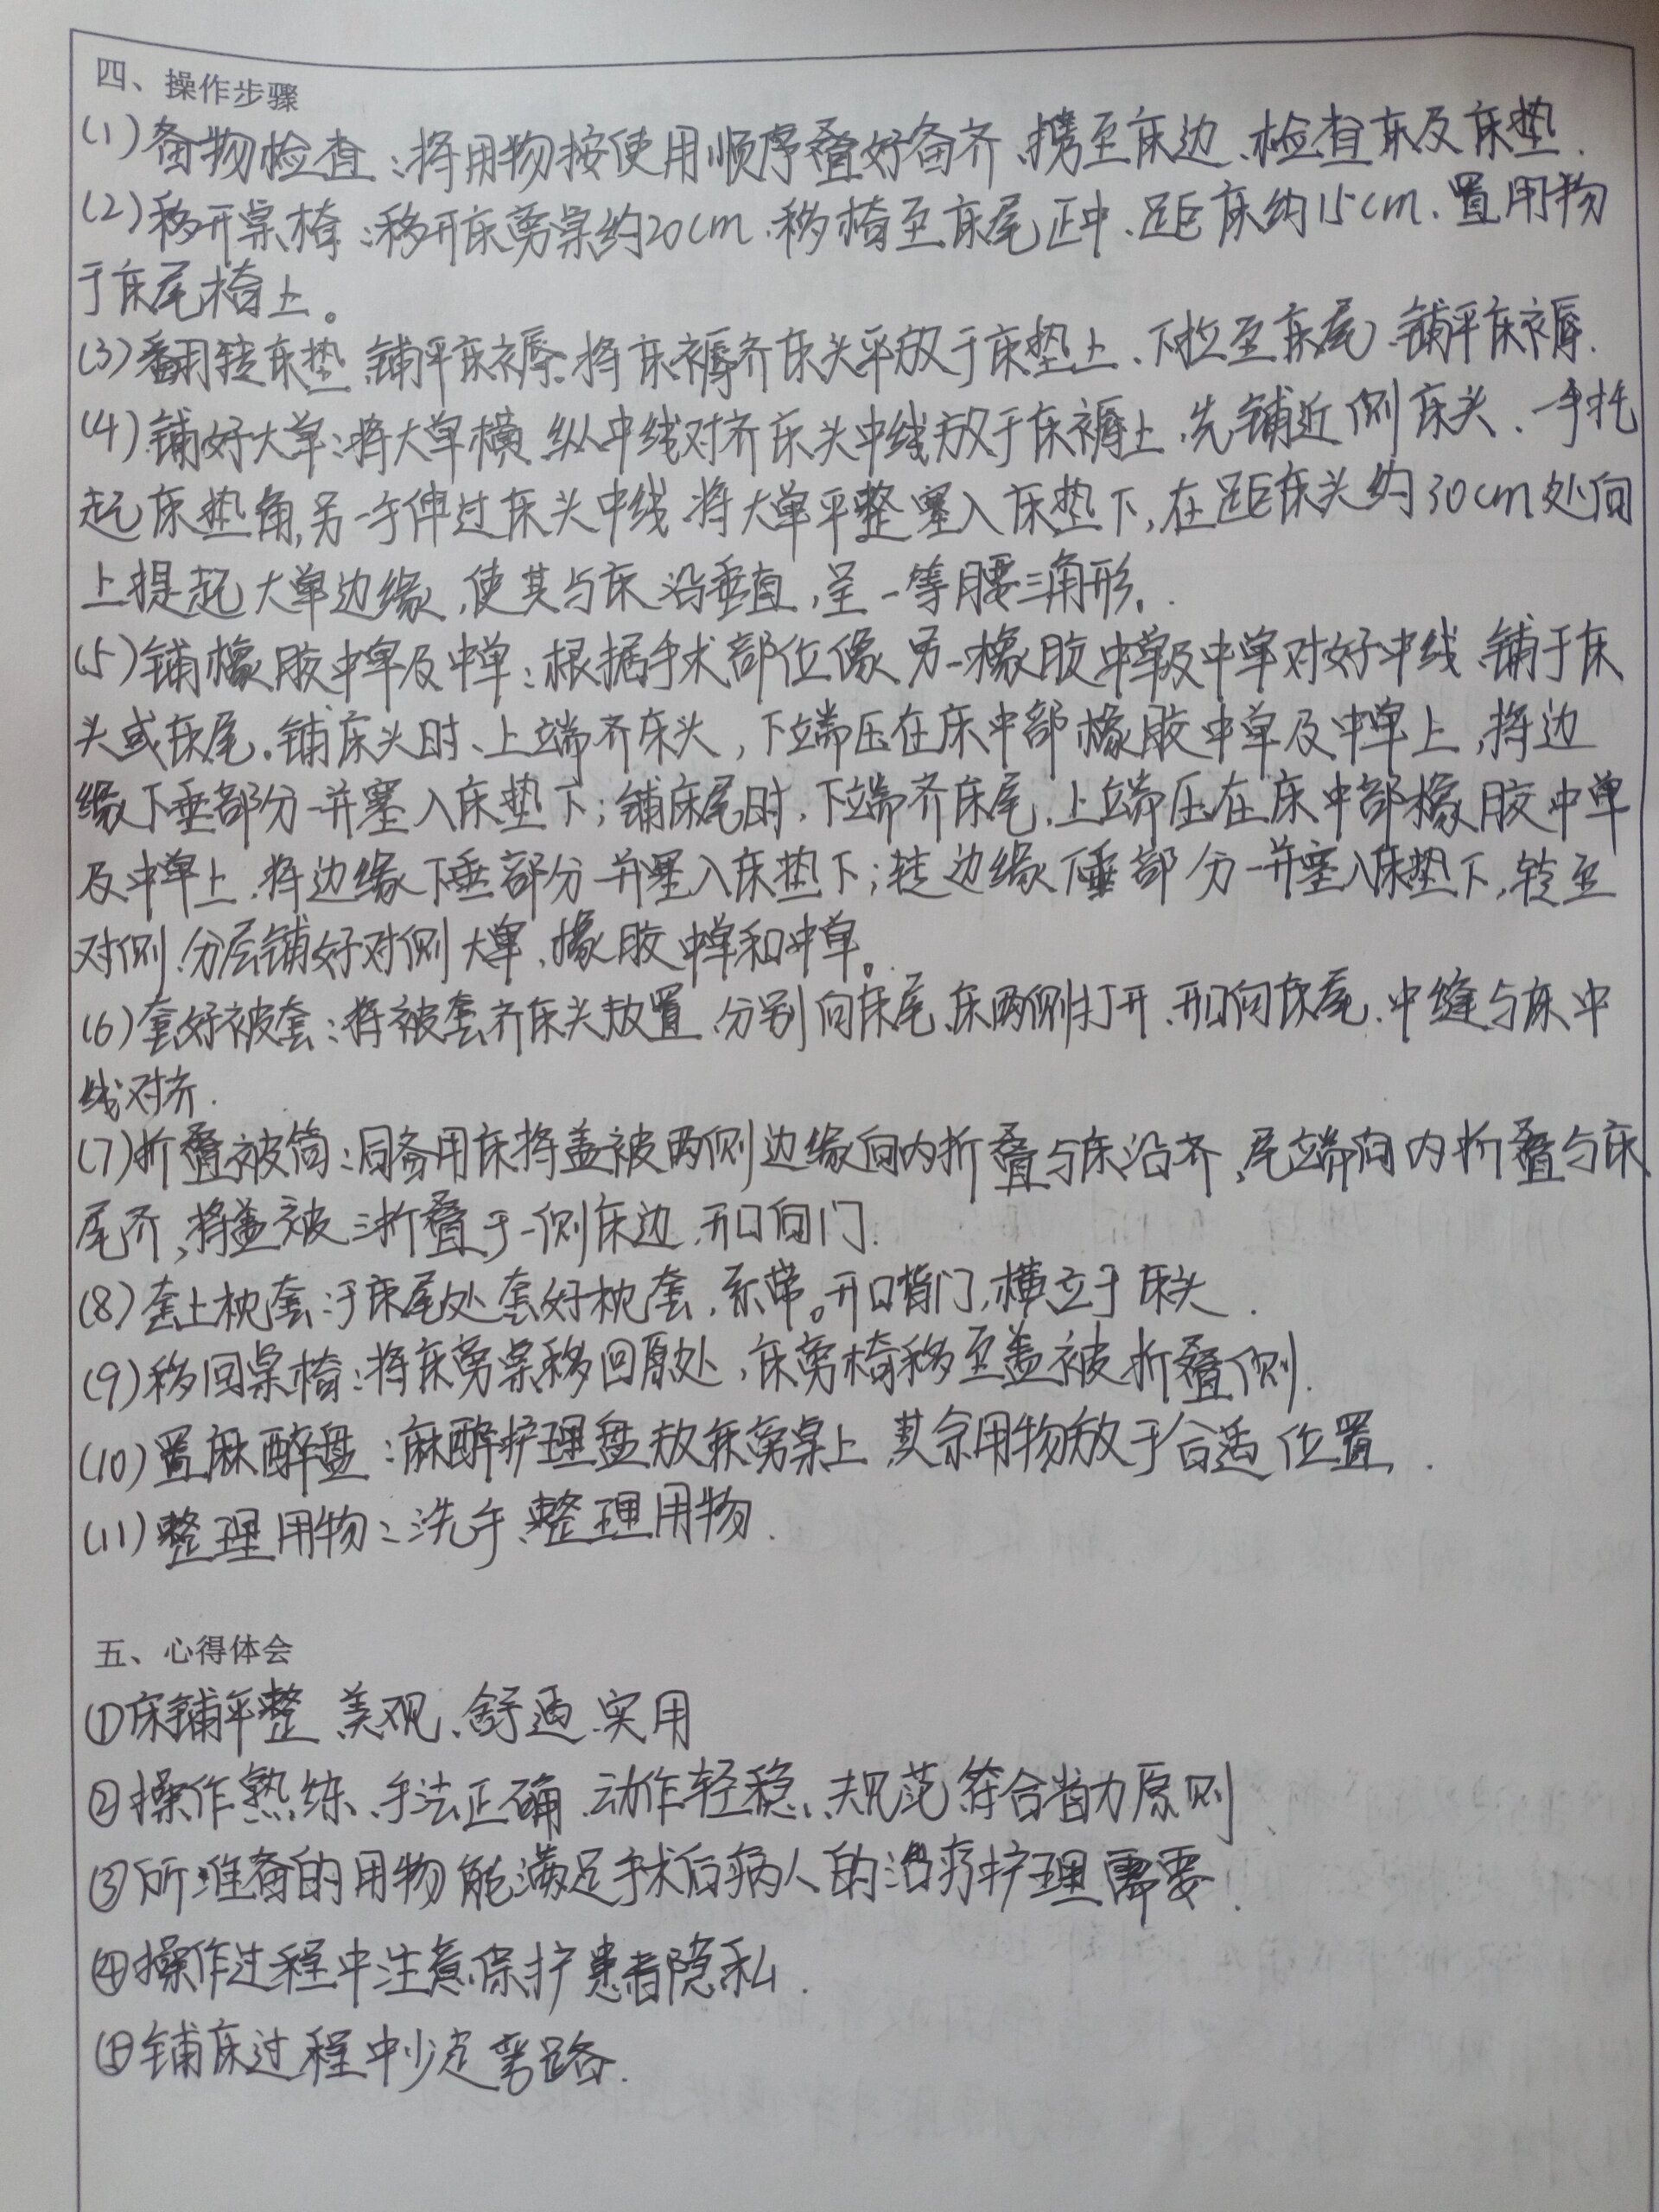 四、操作步骤
(1)备物检查:将用物按使用顺序叠好备齐、携至床边、检查床及床垫.
(2)移开桌椅:移开床旁桌约20cm.移椅至床尾正中、距床约15cm.置用物
于床尾椅上。
(3)翻转床垫、铺平床褥:将床褥齐床头平放于床垫上、下拉至床尾、铺平床褥.
(4)铺好大单:将大单横、纵中线对齐床头中线放于床褥上、先铺近侧床头、一手托
起床垫角,另一手伸过床头中线.将大单平整塞入床垫下,在距床头约30cm处向
上提起大单边缘,使其与床沿垂直,呈一等腰三角形.
(5)铺橡胶中单及中单:根据手术部位像另一橡胶中单及中单对好中线、铺于床
头或床尾。铺床头时、上端齐床头,下端压在床中部橡胶中单及中单上,将边
缘下垂部分一并塞入床垫下;铺床尾时,下端齐床尾,上端压在床中部橡胶中单
及中单上.将边缘下垂部分一并塞入床垫下;转边缘下垂部分一并塞入床垫下,转至
对侧.分层铺好对侧大单、橡胶中单和中单。
(6)套好被套:将被套齐床头放置、分别向床尾、床两侧打开、开口向床尾.中缝与床中
线对齐.
(7)折叠被筒:同备用床将盖被两侧边缘向内折叠与床沿齐,尾端向内折叠与床
尾齐,将盖被三折叠于一侧床边、开口向门.
(8)套上枕套:于床尾处套好枕套,系带。开口背门,横立于床头.
(9)移回桌椅:将床旁桌移回原处,床旁椅移至盖被折叠侧.
(10)置麻醉盘:麻醉护理盘放床旁桌上、其余用物放于合适位置.
(11)整理用物:洗手、整理用物.
五、心得体会
①床铺平整、美观、舒适、实用
②操作熟练、手法正确、动作轻稳、规范符合省力原则、
③所准备的用物能满足手术后病人的治疗护理需要.
④操作过程中注意保护患者隐私.
⑤铺床过程中少走弯路.